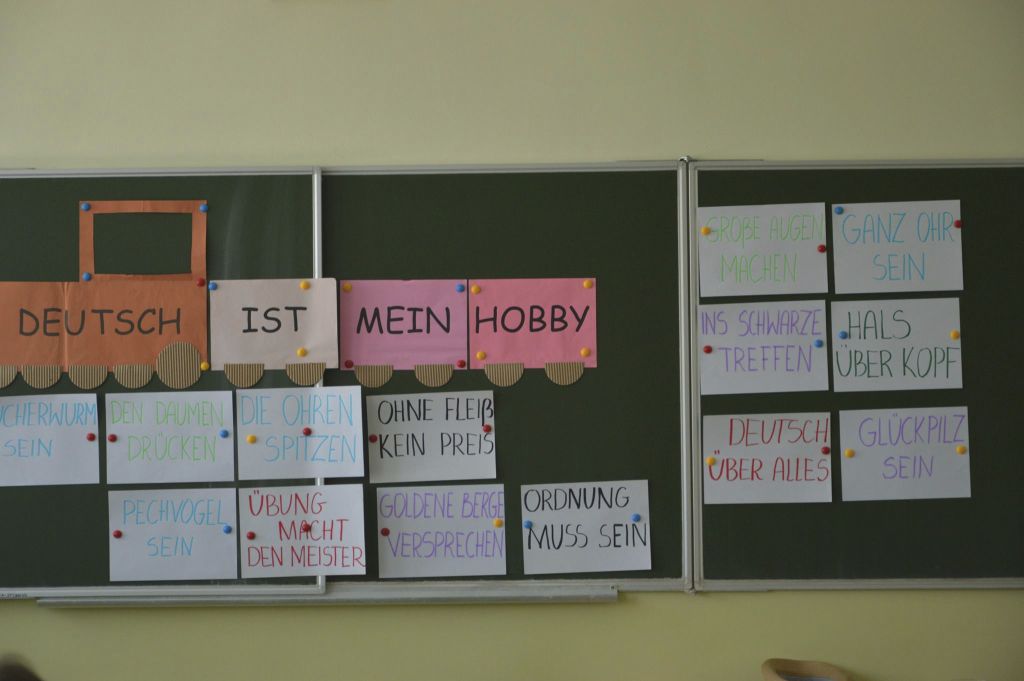 DEUTSCH IST MEIN HOBBY
UCHERWURM
SEIN
DEN DAUMEN
DRÜCKEN
DIE OHREN
SPITZEN
OHNE FLEIß
KEIN PREIS
PECHVOGEL
SEIN
ÜBUNG
MACHT
DEN MEISTER
GOLDENE BERGE
VERSPRECHEN
ORDNUNG
MUSS SEIN
GROßE AUGEN
MACHEN
GANZ OHR
SEIN
INS SCHWARZE
TREFFEN
HALS
ÜBER KOPF
DEUTSCH
ÜBER ALLES
GLÜCKPILZ
SEIN